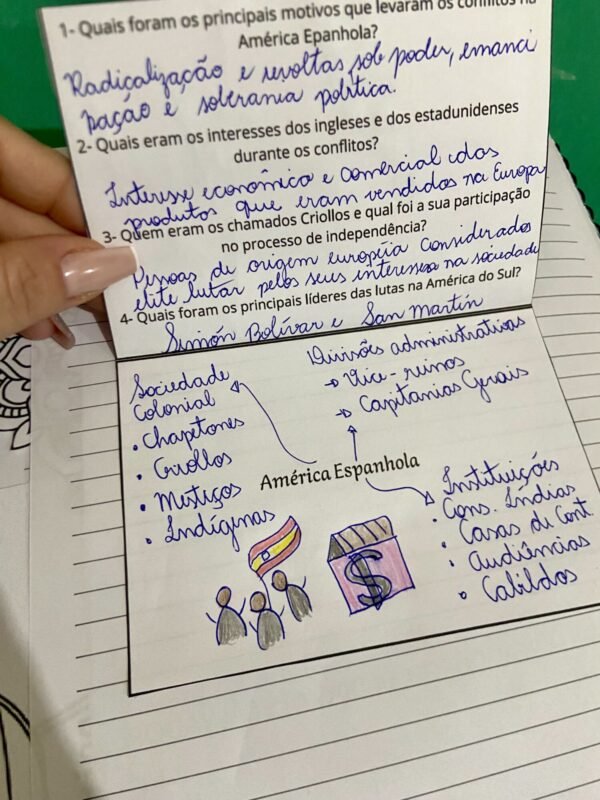 1- Quais foram os principais motivos que levaram os conflitos na
América Epanhola?
Radicalização e revoltas sob poder, emanci
pação e soberania política.
2- Quais eram os interesses dos ingleses e dos estadunidenses
durante os conflitos?
Interesse econômico e comercial dos
produtos que eram vendidos na Europa
3- Quem eram os chamados Criollos e qual foi a sua participação
no processo de independência?
Pessoas de origem européia considerados
elite lutar pelos seus interesses na sociedade
4- Quais foram os principais líderes das lutas na América do Sul?
Simón Bolívar e San Martín
Sociedade
Colonial
• Chapetones
• Criollos
• Mestiços
• Indígenas
Divisões administrativas
→ Vice-reinos
→ Capitanias Gerais
América Espanhola
Instituições
• Cons. Índias
• Casas de Cont.
• Audiências
• Cabildos
$